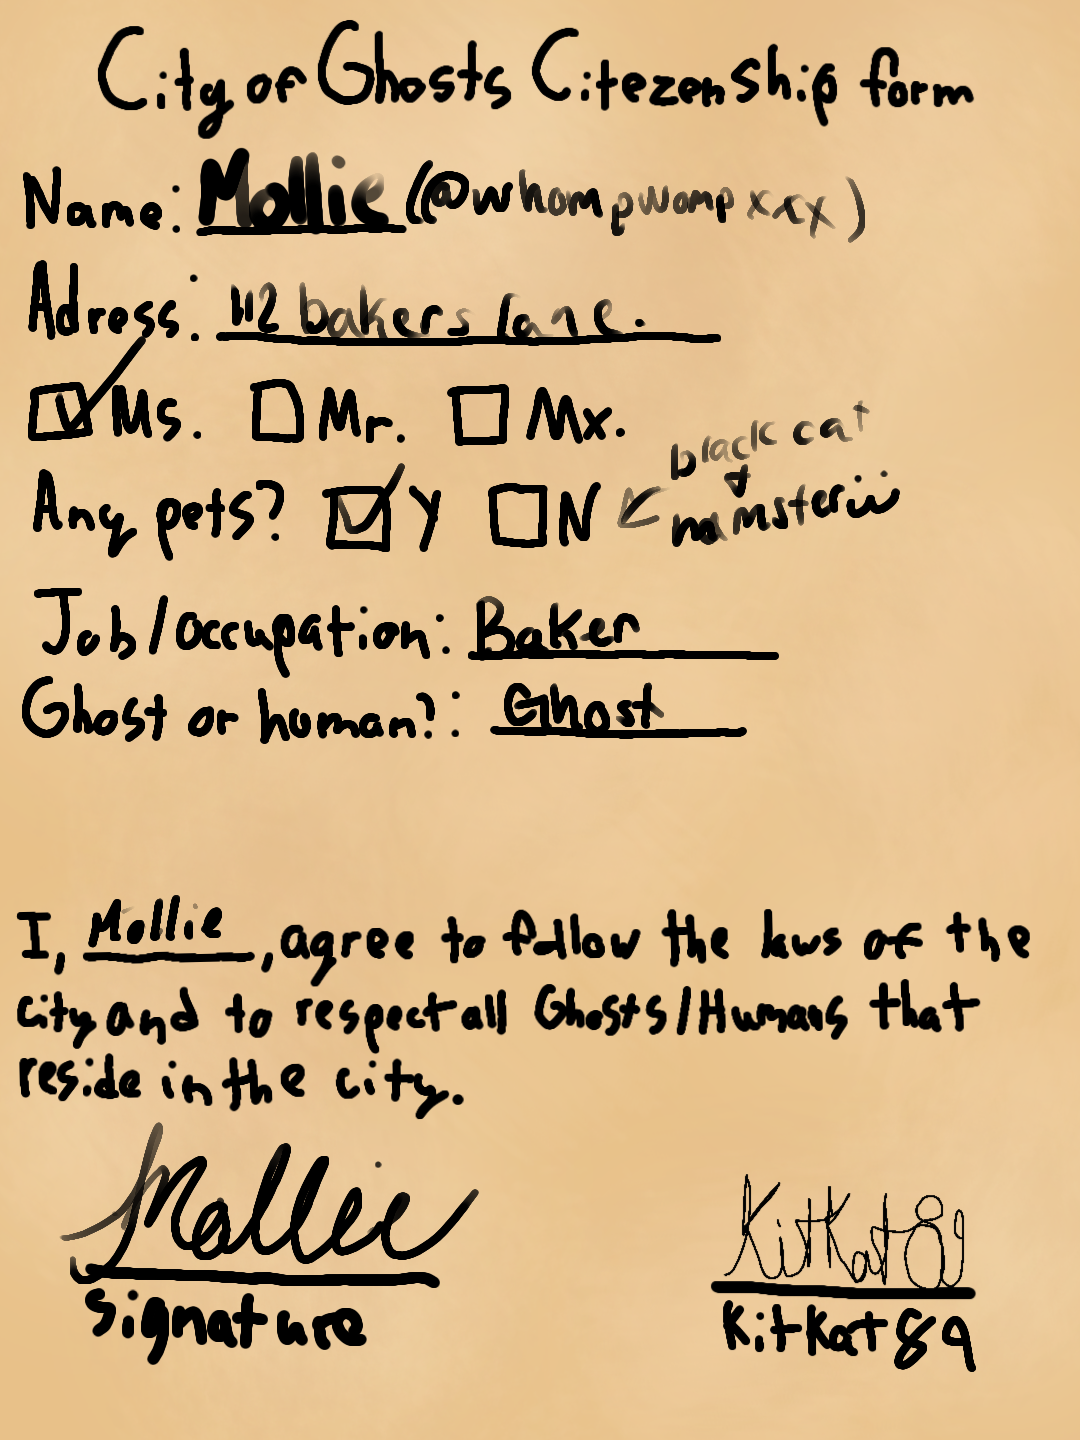 City of Ghosts Citezenship form
Name: Mollie (@whompwompxxx)
Adress: 112 bakers lane.
Ms. Mr. Mx.
black cat
Any pets? Y N
+
Job/occupation: Baker
Ghost or human?: Ghost
I, Mollie, agree to follow the laws of the
city and to respect all Ghosts/Humans that
reside in the city.
Mollie
signature
KitKat89
KitKat89